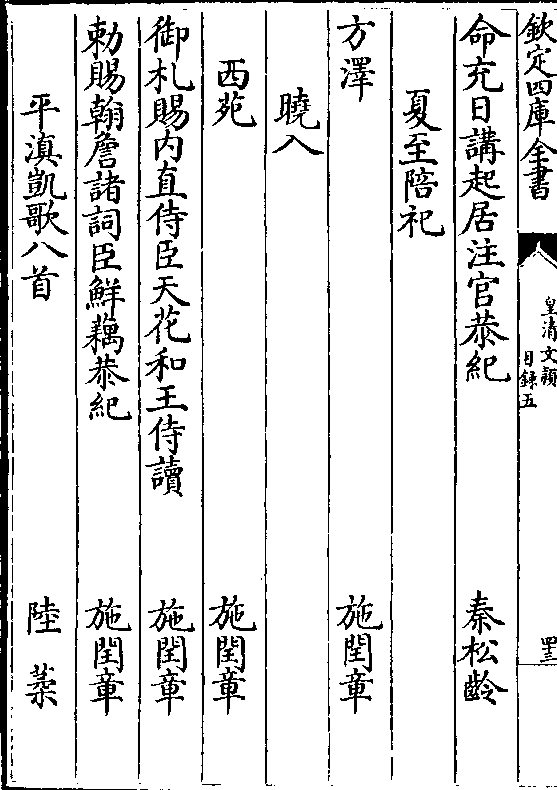 欽定四庫全書
皇清文穎
目録五
命充日講起居注官恭紀 秦松齡
夏至陪祀
方澤 施閏章
曉入
西苑 施閏章
御札賜内直侍臣天花和王侍讀 施閏章
勅賜翰詹諸詞臣鮮藕恭紀 施閏章
平滇凱歌八首 陸葇